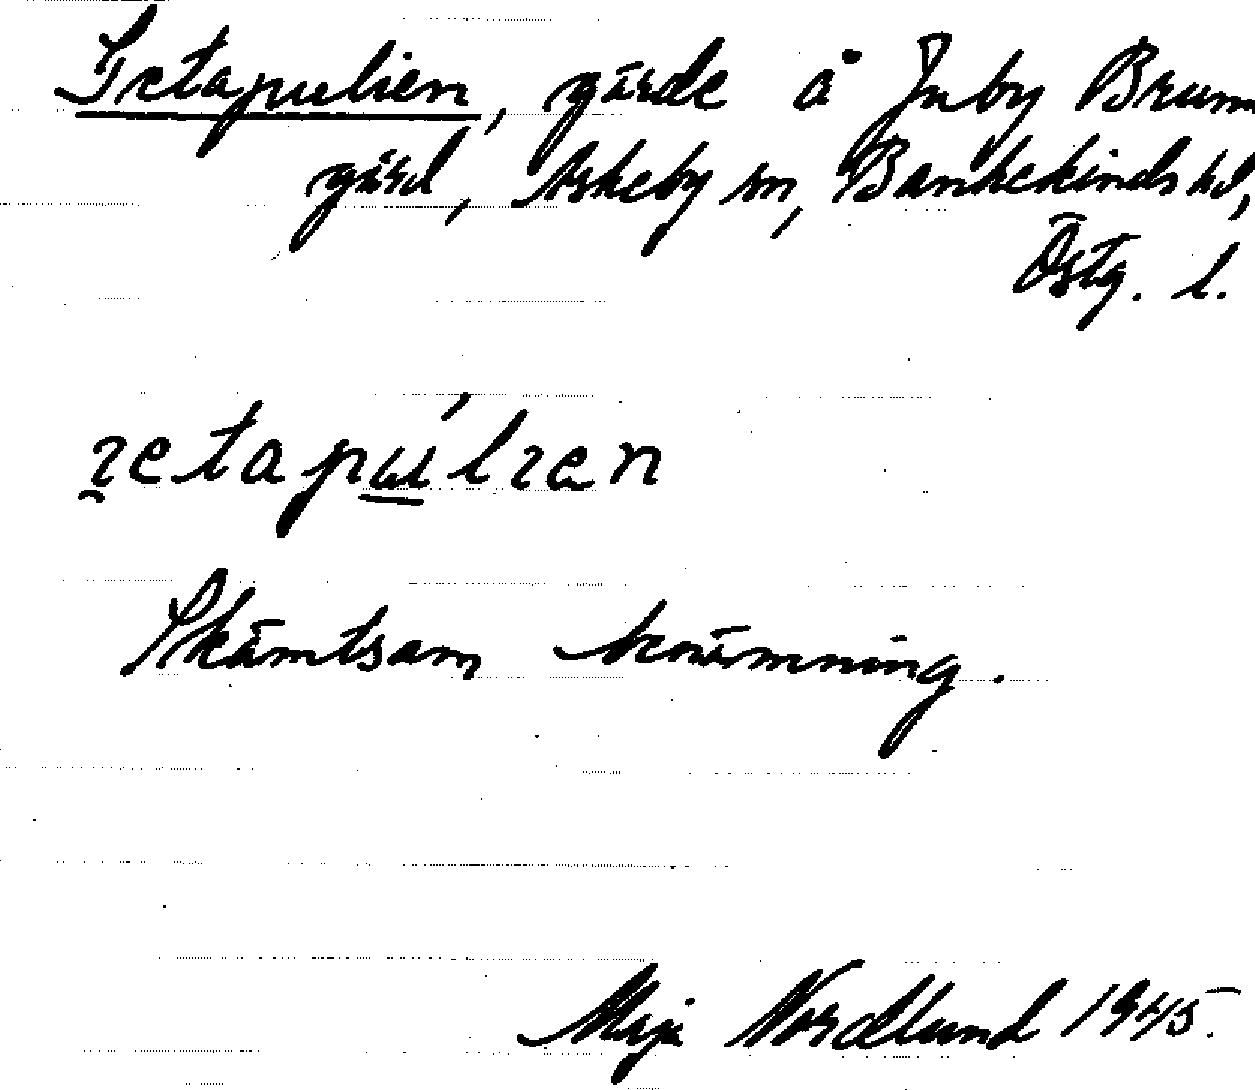 Jetapulien, gärde å Inby Brunn
gård, Askeby sn, Bankekinds hd,
Östg. l.
ɪetapúlɪen
Skämtsam benämning.
Maja Nordlund 1945.